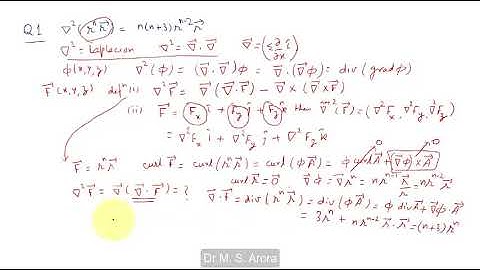 Q1 ∇²(rⁿ r⃗) = n(n+3) rⁿ⁻² r⃗
∇² = Laplacian ∇² = ∇⃗ · ∇⃗ ∇⃗ = (Σ ∂/∂x î)
φ(x,y,z) ∇²(φ) = (∇⃗ · ∇⃗)φ = ∇⃗ · (∇⃗φ) = div(grad φ)
F⃗(x,y,z) defⁿ (i) ∇²F⃗ = ∇⃗(∇⃗ · F⃗) - ∇⃗ × (∇⃗ × F⃗)
(ii) F⃗ = Fx î + Fy ĵ + Fz k̂ then ∇²F⃗ = (∇²Fx, ∇²Fy, ∇²Fz)
= ∇²Fx î + ∇²Fy ĵ + ∇²Fz k̂
F⃗ = rⁿ r⃗ curl F⃗ = curl(rⁿ r⃗) = curl(φA⃗) = φ curl A⃗ + (∇⃗φ) × A⃗
curl r⃗ = 0⃗ ∇⃗φ = ∇⃗rⁿ = n rⁿ⁻¹ r⃗/r = n rⁿ⁻² r⃗
∇²F⃗ = ∇⃗(∇⃗ · F⃗) = ? ∇⃗ · F⃗ = div(rⁿ r⃗) = div(φA⃗) = φ div A⃗ + ∇⃗φ · A⃗
= 3rⁿ + n rⁿ⁻² r⃗ · r⃗ = (n+3)rⁿ
Dr M. S. Arora